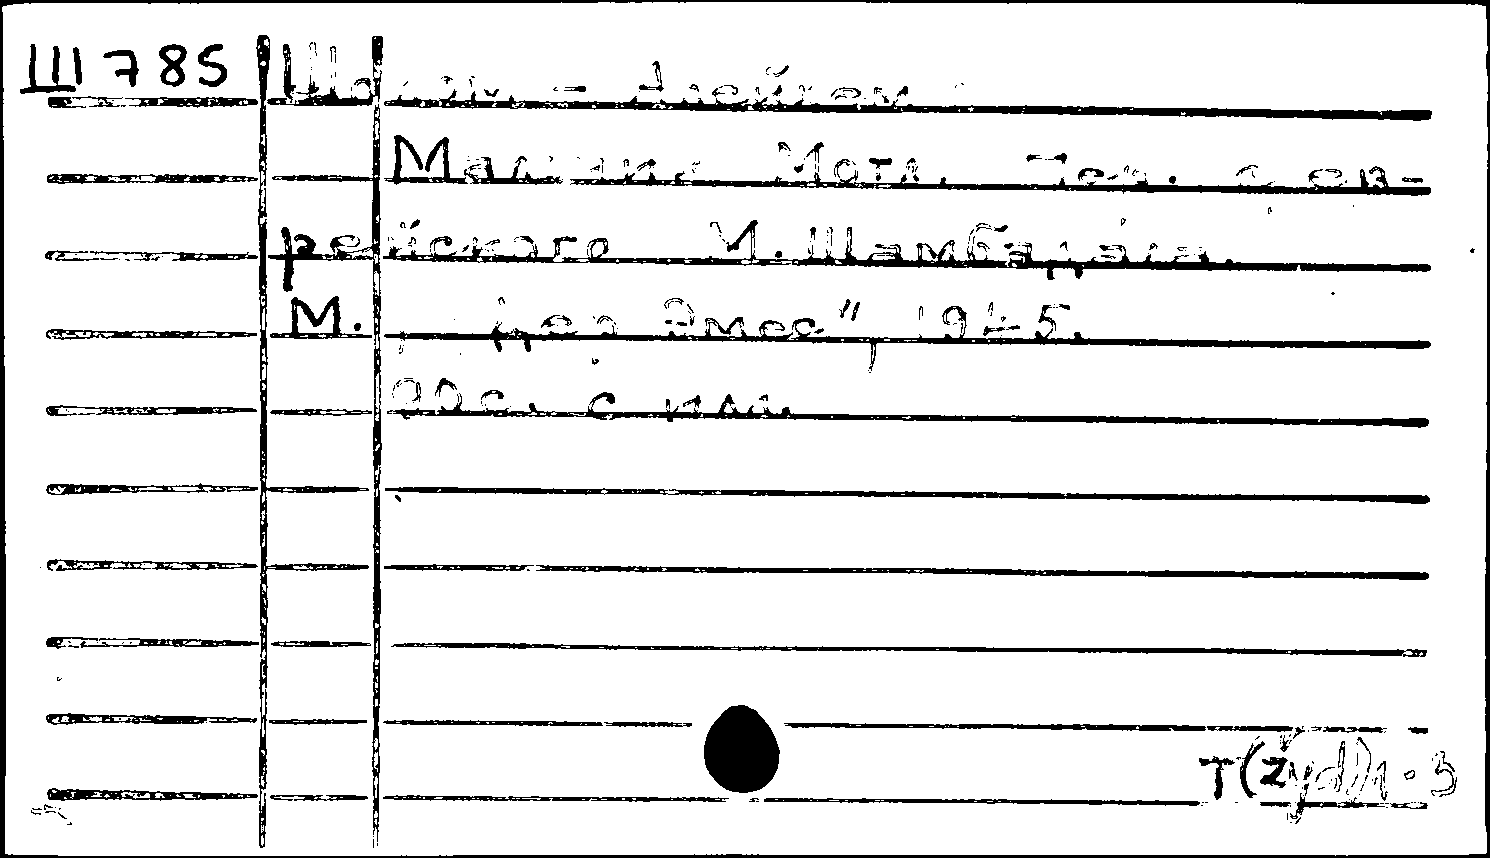 Ш 785 Шолом-Алейхем
Мальчик Мотл. Пер. с ев-
рейского М. Шамбадала.
М., „Дер Эмес", 1945.
с. с илл.
T(żyd)1-3